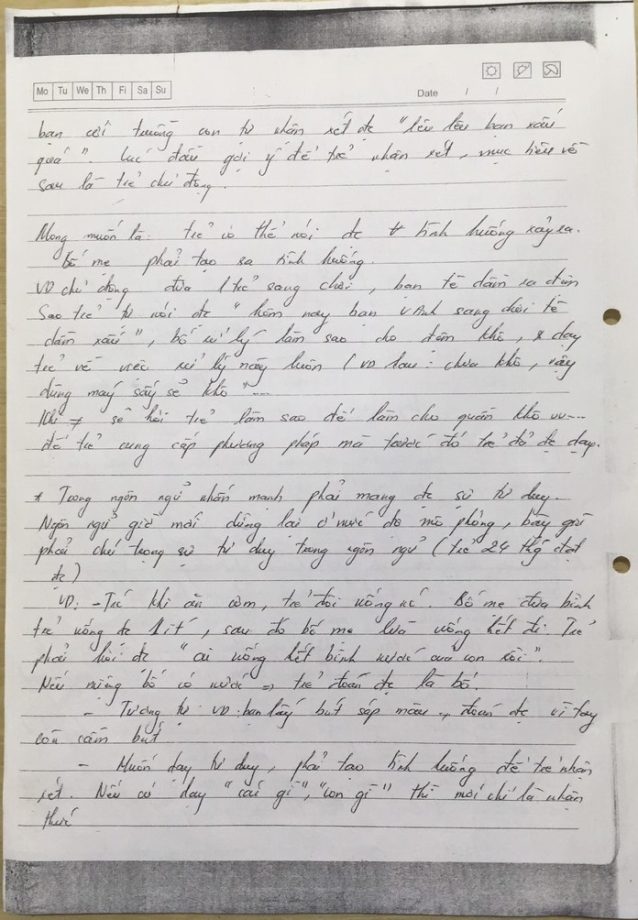 Mo Tu We Th Fi Sa Su
Date / /
bạn cởi truồng con tự nhận xét đc "lêu lêu bạn xấu
quá". Lúc đầu gợi ý để trẻ nhận xét, mục tiêu về
sau là trẻ chủ động.
Mong muốn là: trẻ có thể nói đc tình huống xảy ra.
Bố mẹ phải tạo ra tình huống.
VD chủ động đưa 1 trẻ sang chơi, bạn tè dầm ra đệm
Sao trẻ tự nói đc "hôm nay bạn VAnh sang chơi tè
dầm xấu", bố xử lý làm sao cho đệm khô, & dạy
trẻ về việc xử lý này luôn (VD lau: chưa khô, vậy
dùng máy sấy sẽ khô"...
Khi sẽ hỏi trẻ làm sao để làm cho quần khô vv...
để trẻ cung cấp phương pháp mà trước đó trẻ đã đc dạy.
* Trong ngôn ngữ nhấn mạnh phải mang đc sự tư duy.
Ngôn ngữ giờ mới dừng lại ở mức độ mô phỏng, bây giờ
phải chú trọng sự tư duy trong ngôn ngữ (trẻ 24 thg đạt
đc)
VD: - Trc khi ăn cơm, trẻ đòi uống nc. Bố mẹ đưa bình
trẻ uống đc 1 ít, sau đó bố mẹ lừa uống hết đi. Trẻ
phải hỏi đc "ai uống hết bình nước của con rồi".
Nếu miệng bố có nước => trẻ đoán đc là bố.
- Tương tự VD: bạn lấy bút sáp màu -> đoán đc vì tay
còn cầm bút
- Muốn dạy tư duy, phải tạo tình huống để trẻ nhận
xét. Nếu cứ dạy "cái gì", "con gì" thì mới chỉ là nhận
thức